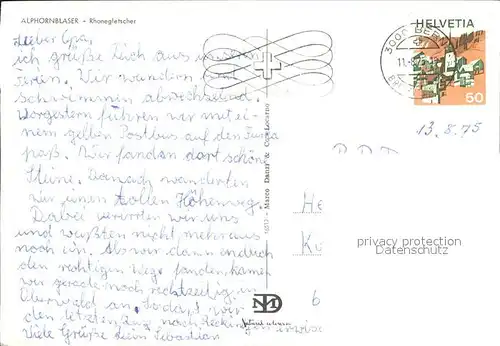 ALPHORNBLÄSER - Rhonegletscher
HELVETIA
3000 BERN
50
13.8.75
Lieber Opa,
ich grüße Dich aus unseren
Ferien. Wir wandern und
schwimmen abwechselnd.
Vorgestern führen wir mit ei-
nem gelben Postbus auf den Furka
paß. Wir fanden dort schöne
Steine. Danach wanderten
wir einen tollen Höhenweg.
Dabei verirrten wir uns
und wußten nicht mehr aus
noch ein. Als wir dann endlich
den richtigen Weg fanden, kamen
wir gerade noch rechtzeitig in
Oberwald an, sodaß wir
den letzten Zug nach Reckingen
Viele Grüße Dein Sebastian
Marco Danzi & Co., Locarno
BRD
He
Kö
6
privacy protection
Datenschutz